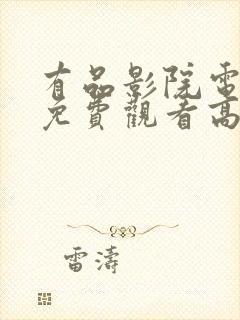 有品影院電
免費觀看高
雷濤